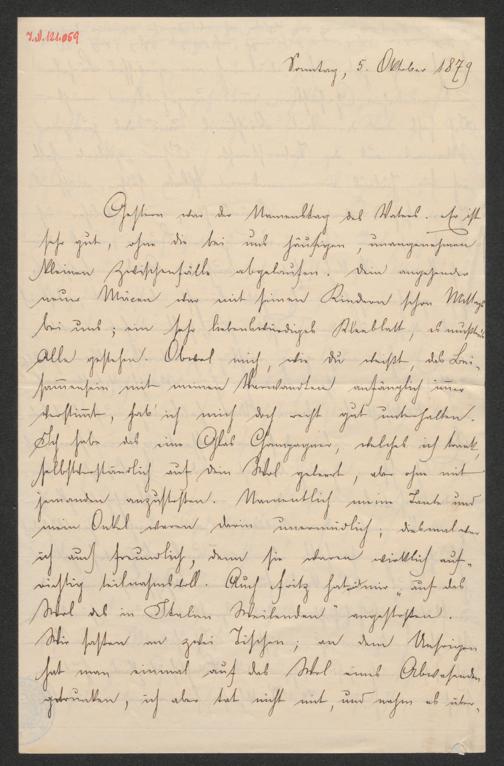 I.N. 121.069
Sonntag, 5. Oktober 1879
Gestern war der Namenstag des Vaters. Er ist
sehr gut, ohne die bei uns häufigen, unangenehmen
kleinen Zwischenfälle abgelaufen. Dein angehender
neuer Mäcen war mit seinen Kindern schon Mittags
bei uns; ein sehr liebenswürdiges Kleeblatt, es
Alle gestehen. Obwol mich, wie du weißt, das Bei-
sammensein mit meinen Verwandten anfänglich immer
verstimmt, hab' ich mich doch recht gut unterhalten.
Ich habe das eine Glas Champagner, welches ich trank,
selbstverständlich auf dein Wol geleert, aber ohne mit
jemanden anzustoßen. Namentlich meine Tante und
mein Onkel waren darin unermüdlich; diesmal war
ich auch freundlich, denn sie waren wirklich auf-
richtig teilnahmsvoll. Auch Fritz hat mir „auf das
Wol des in Italien Weilenden" angestoßen.
Wir saßen an zwei Tischen; an dem Unsrigen
hat man einmal auf das Wol eines Abwesenden
getrunken, ich aber tat nicht mit, und nahm es über-